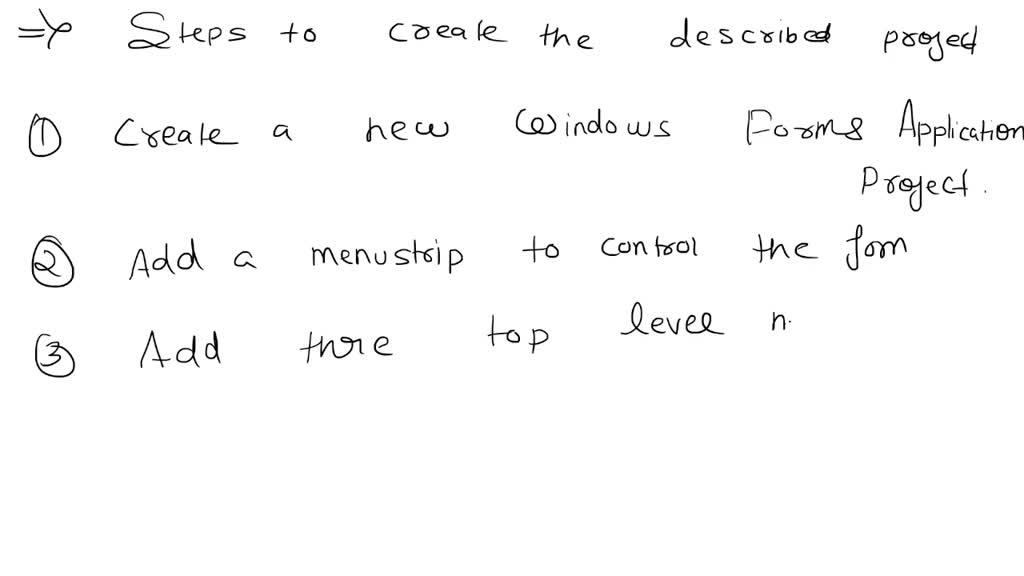 => Steps to create the described project
① Create a new Windows Forms Application
Project.
② Add a menustrip to control the form
③ Add thre top level